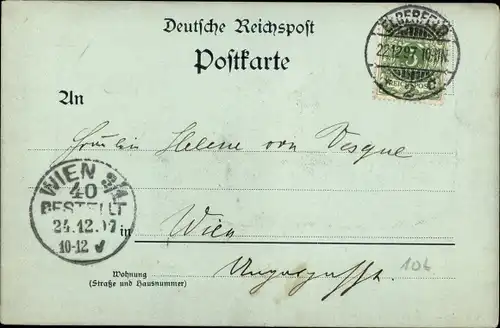 Deutsche Reichspost
Postkarte
ELBERFELD
22.12.97
2 c
5
An
Fräulein Helene von Vesque
WIEN 3/1
40
BESTELLT
24.12.97
10-12 V
in Wien
Wohnung
(Straße und Hausnummer)
Ungargasse
106